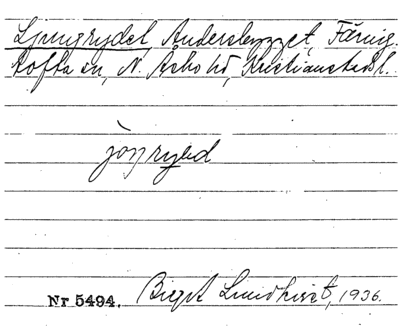 Ljungrydet, Andersbygget, Färing-
tofta sn, N. Åsbo hd, Kristianstads l.
Nr 5494. Birgit Lundkvist, 1936.